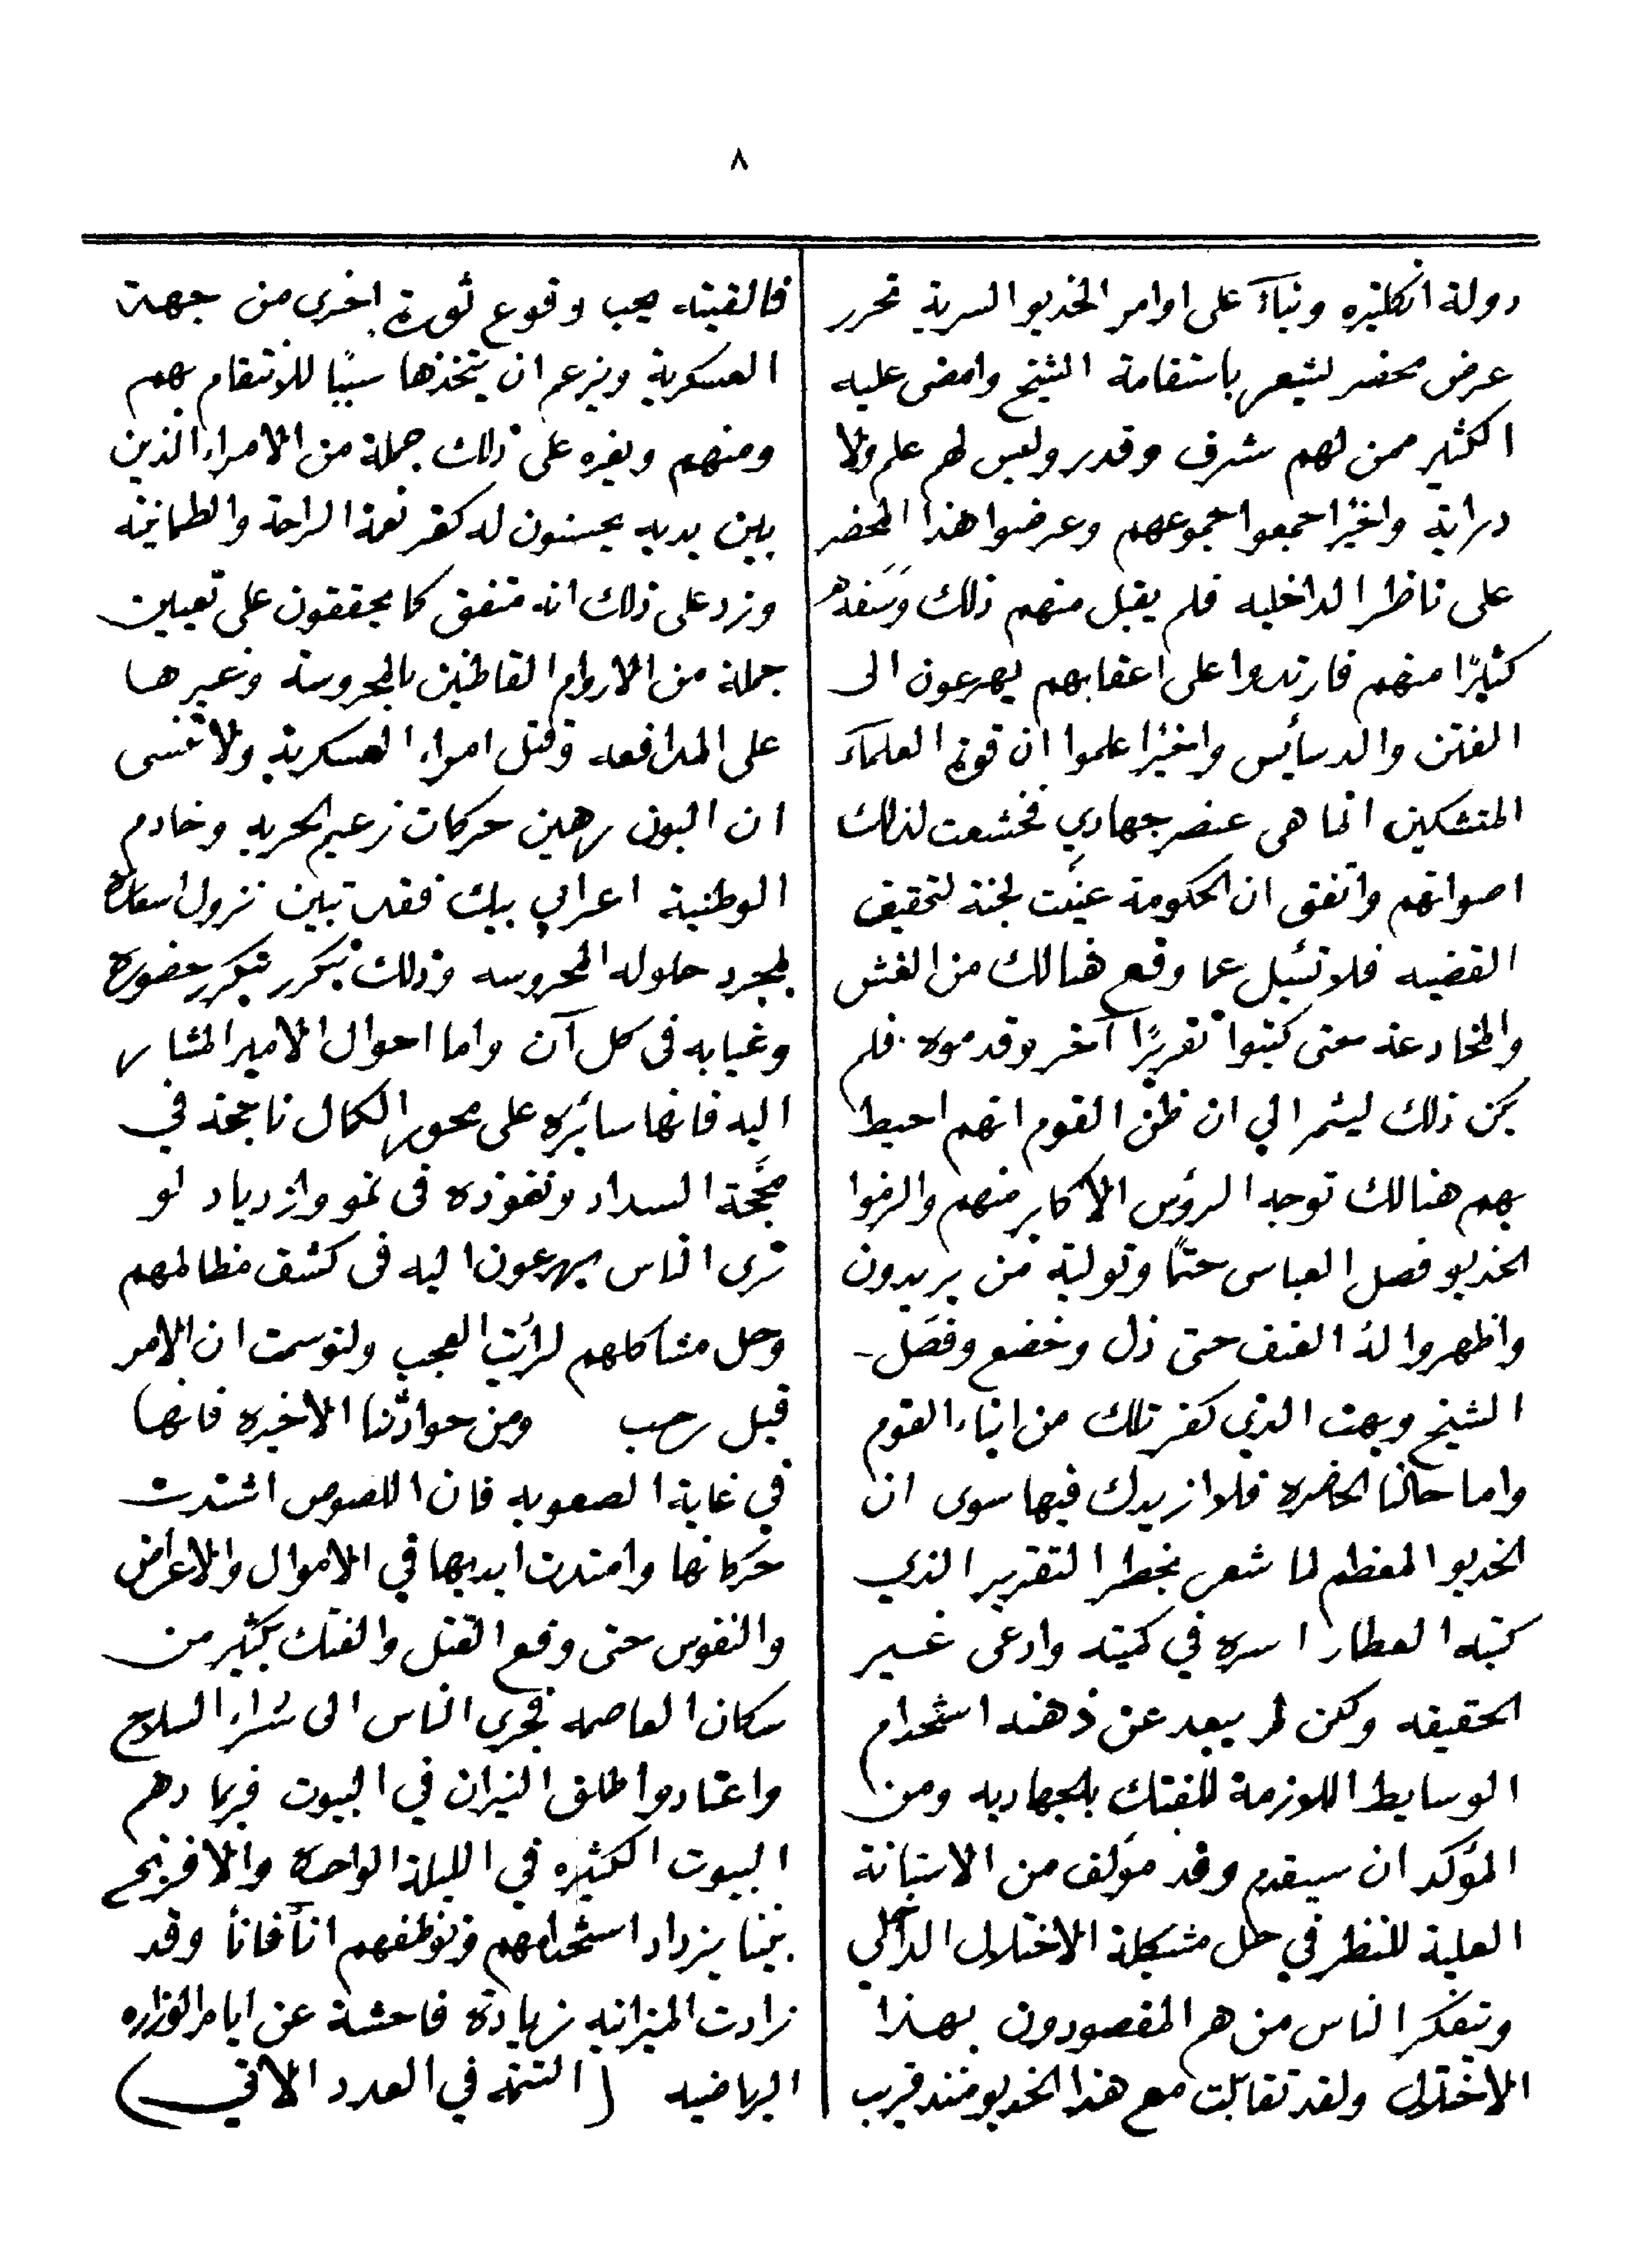 ٨
دولة انكلتيره وبناءً على اوامر الخديو السرية تحرر
عرض محضر يشعر باستقامة الشيخ وامضى عليه
الكثير ممن لهم شرف وقدر وليس لهم علم ولا
دراية واخيرًا جمعوا جموعهم وعرضوا هذا المحضر
على ناظر الداخليه فلم يقبل منهم ذلك وسَفه
كثيرًا منهم فارتدوا على اعقابهم يهرعون الى
الفتن والدسائيس واخيرًا علموا ان قوة العلماء
المتشكين انما هى عنصر جهادي فخشعت لذلك
اصواتهم واتفق ان الحكومة عينَت لجنة لتحقيق
القضيه فلا تسئيل عما وقع هنالك من الغش
والمخادعة حتى كتبوا تقريرًا آخر وقدموه فلم
يكن ذلك ليثمر الي ان ظن القوم انهم احيط
بهم هنالك توجه الرؤس الاكابر منهم والزموا
الخديو فصل العباسى حتمًا وتولية من يريدون
واظهروا لهُ العنف حتى ذل وخضع وفصَل
الشيخ وبهت الذي كفر تلك من انباء القوم
واما حالنا الحاضره فلا ازيدك فيها سوى ان
الخديو المعظم لما شعر بخطر التقرير الذي
كتبه العطار اسره في كميته وادعى غير
الحقيقه ولكن لم يبعد عن ذهنه استخدام
الوسايط اللازمة للفتك بالجهاديه ومن
المؤكد ان سيقدم وفد مؤلف من الاستانة
العلية للنظر في حل مشكلة الاختلال الداخلي
وتفكر الناس من هم المقصودون بهذا
الاختلال ولقد تقابلت مع هذا الخديو منذ قريب
فالفيته يحب وقوع ثورة اخرى من جهة
العسكرية ويزعم ان يتخذها سببًا للانتقام بهم
ومنهم ويغره على ذلك جملة من الامراء الذين
بين يديه يحسنون له كفر نعمة الراحة والطمانينة
وزد على ذلك انه متفق كما يحققون على تعيين
جملة من الاروام القاطنين بالمحروسة وغيرها
على المدافعه وقتل امراء العسكرية ولا تنسى
ان البون رهين حركات زعيم الحريه وخادم
الوطنية اعرابي بيك فقد تبين نزول اسعاره
لمجرد حلوله المحروسه وذلك يتكرر بتكرر حضوره
وغيابه فى كل آن واما احوال الامير المشار
اليه فانها سائره على محور الكمال ناجحة في
محجَة السداد ونفوذه فى نمو وازدياد لو
ترى الناس يهرعون اليه فى كشف مظالمهم
وحل مشاكلهم لرأيت العجب ولتوسمت ان الامر
قبل رحب ومن حوادثنا الاخيره فانها
في غاية الصعوبه فان اللصوص اشتدت
حركاتها وامتدت ايديها في الاموال والاعراض
والنفوس حتى وقع القتل والفتك بكثير من
سكان العاصمه فجرى الناس الى شراء السلاح
واعتادوا طلق النيران في البيوت فربما دهم
البيوت الكثيره في الليلة الواحدة والافرنج
بيننا يزداد استخدامهم وتوظفهم اناً فاناً وقد
زادت الميزانيه زيادة فاحشة عن ايام الوزاره
الرياضيه (التتمة في العدد الاتي)